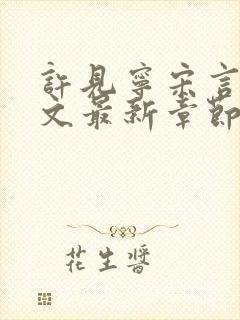 許見寧宋言
文最新章節
花生醬